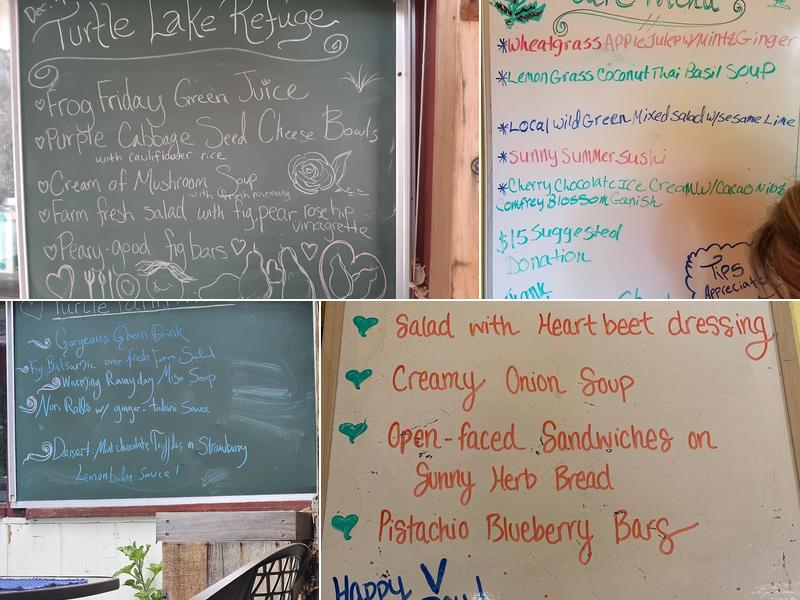 Dec.
Turtle Lake Refuge
Frog Friday Green Juice
Purple Cabbage Seed Cheese Bowls
with cauliflower rice
Cream of Mushroom Soup
with fresh rosemary
Farm fresh salad with fig, pear rosehip
vinagrette
Peary-good fig bars
Menu
*Wheatgrass Apple Julep w/Mint & Ginger
*Lemon Grass Coconut Thai Basil Soup
*Local Wild Green Mixed salad w/sesame Lime
*Sunny Summer Sushi
*Cherry Chocolate Ice Cream w/ Cacao Nibs
Comfrey Blossom Ganish
$15 Suggested
Donation
Thank
Tips
Appreciate
Turtle Farm
Gorgeous Green Drink
Fig Balsamic over fresh farm Salad
Warming Rainy day Miso Soup
Nori Rolls w/ ginger-tahini Sauce
Dessert: Mint Chocolate Truffles on Strawberry
Lemonbalm Sauce!
Salad with Heartbeet dressing
Creamy Onion Soup
Open-faced Sandwiches on
Sunny Herb Bread
Pistachio Blueberry Bars
Happy V
Day!